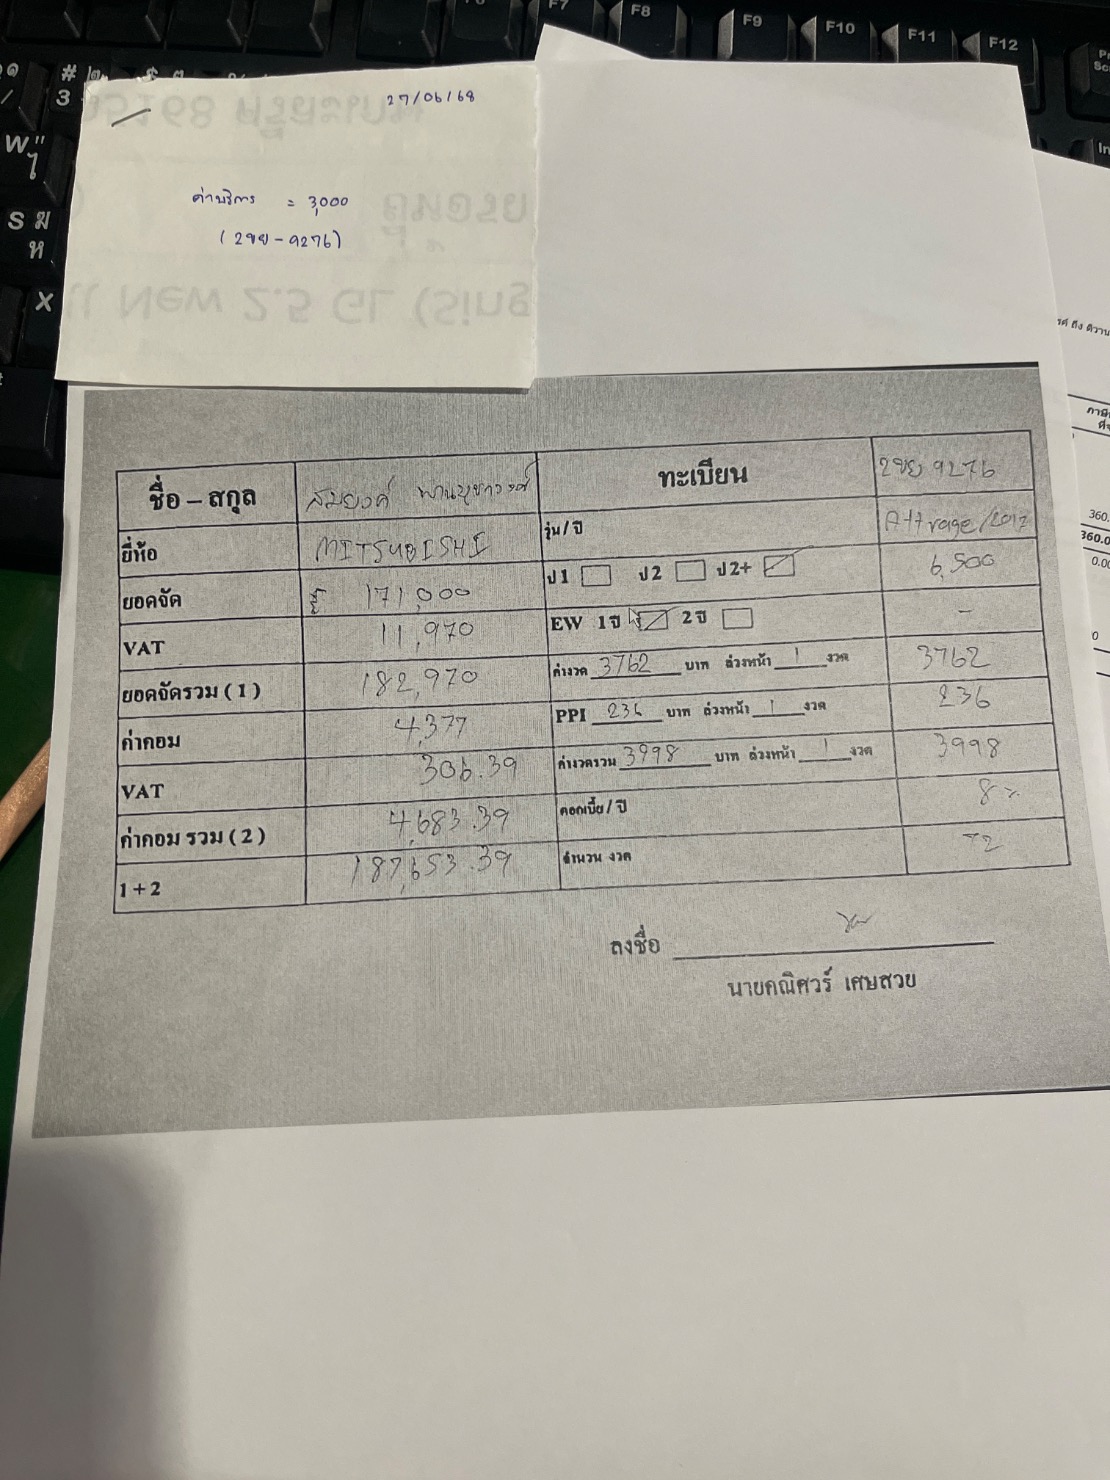 27/06/68
ค่าบริการ = 3,000
(2ขย-9276)
ชื่อ - สกุล สมยงค์ ทะเบียน 2ขย 9276
ยี่ห้อ MITSUBISHI รุ่น/ปี Attrage/2017
ยอดจัด 171,000 ป1 ป2 ป2+ 6,500
VAT 11,970 EW 1ปี 2ปี -
ยอดจัดรวม (1) 182,970 ค่างวด 3762 บาท ล่วงหน้า 1 งวด 3762
ค่าคอม 4,377 PPI 236 บาท ล่วงหน้า 1 งวด 236
VAT 306.39 ค่างวดรวม 3998 บาท ล่วงหน้า 1 งวด 3998
ค่าคอม รวม (2) 4,683.39 ดอกเบี้ย/ปี 8%
1+2 187,653.39 จำนวน งวด 72
ลงชื่อ
นายคณิศวร์ เศษสวย
360.0
0.00
F7
F8
F9
F10
F11
F12
#
3
W
S
X